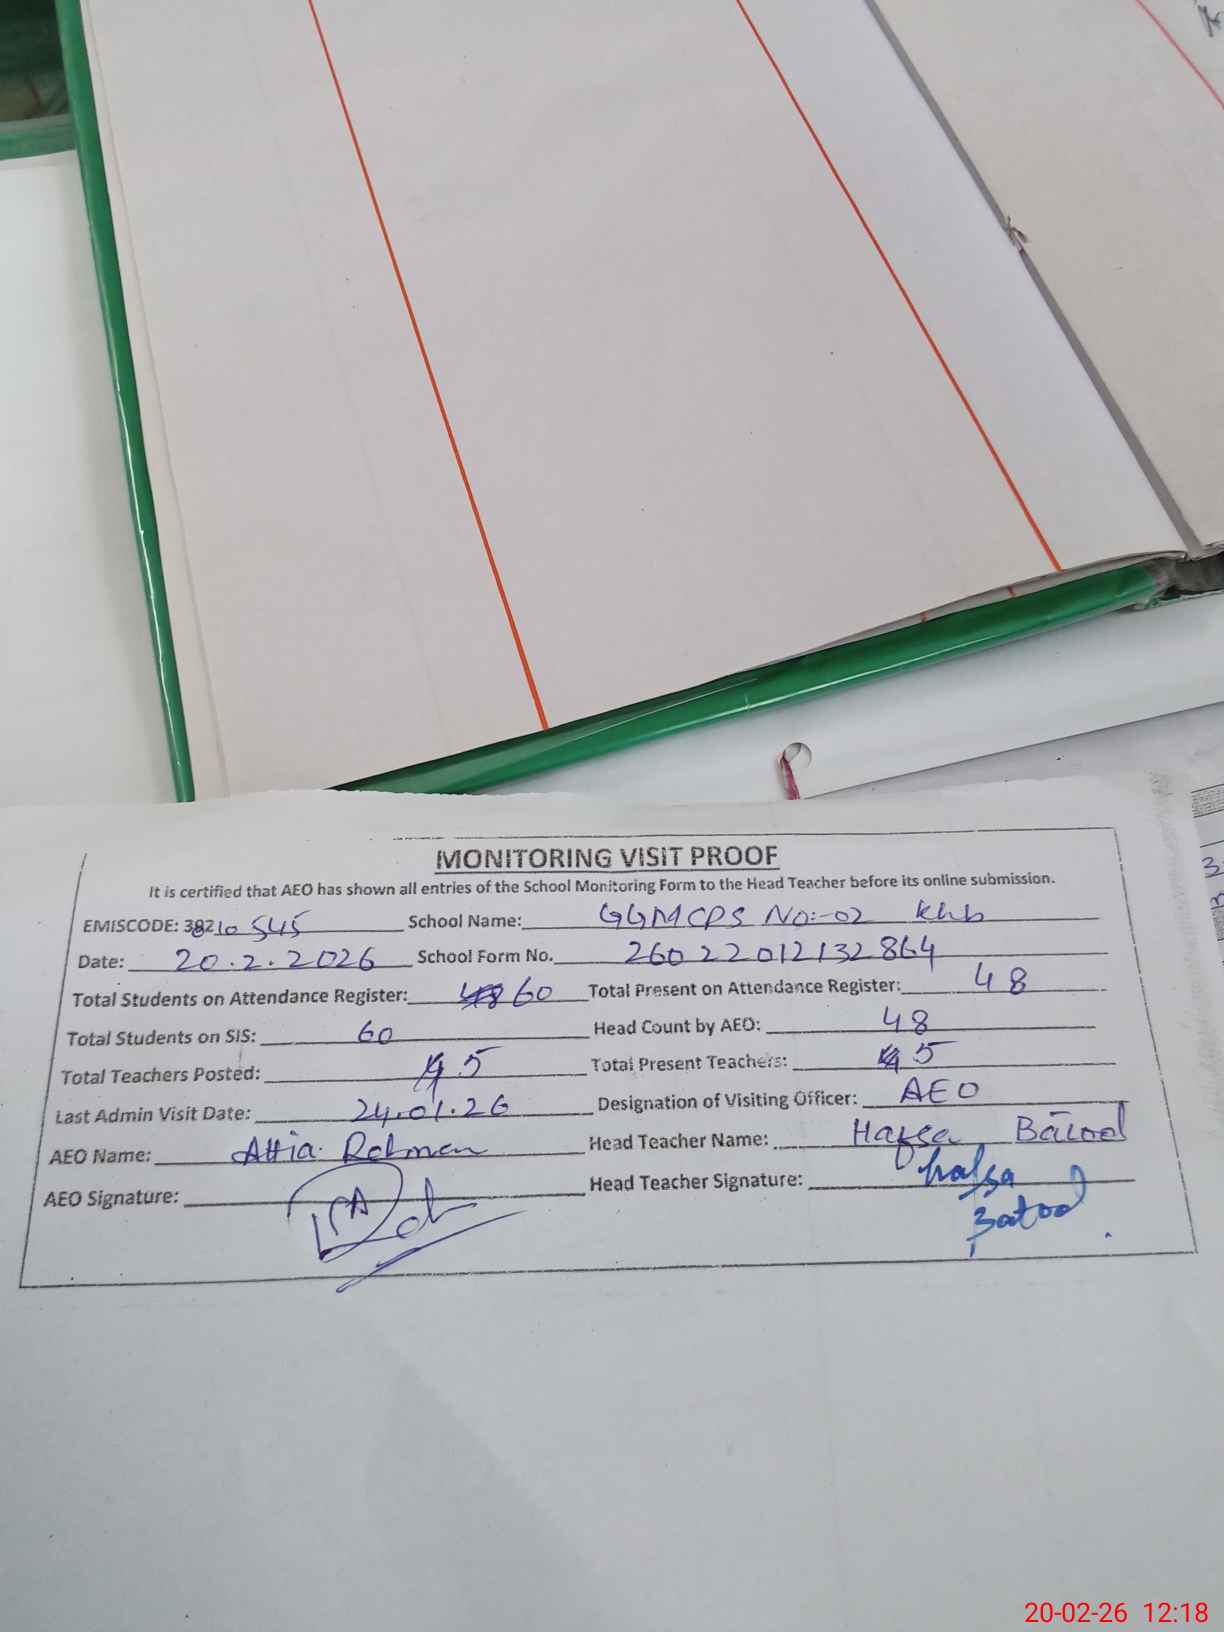 MONITORING VISIT PROOF
It is certified that AEO has shown all entries of the School Monitoring Form to the Head Teacher before its online submission.
EMISCODE: 38210545 School Name: GGMCPS No:-02 Khb
Date: 20.2.2026 School Form No. 26022012132864
Total Students on Attendance Register: 60 Total Present on Attendance Register: 48
Total Students on SIS: 60 Head Count by AEO: 48
Total Teachers Posted: 5 Total Present Teachers: 5
Last Admin Visit Date: 24.01.26 Designation of Visiting Officer: AEO
AEO Name: Attia Rehman Head Teacher Name: Hafsa Batool
AEO Signature: Head Teacher Signature: hafsa
Batool
20-02-26 12:18